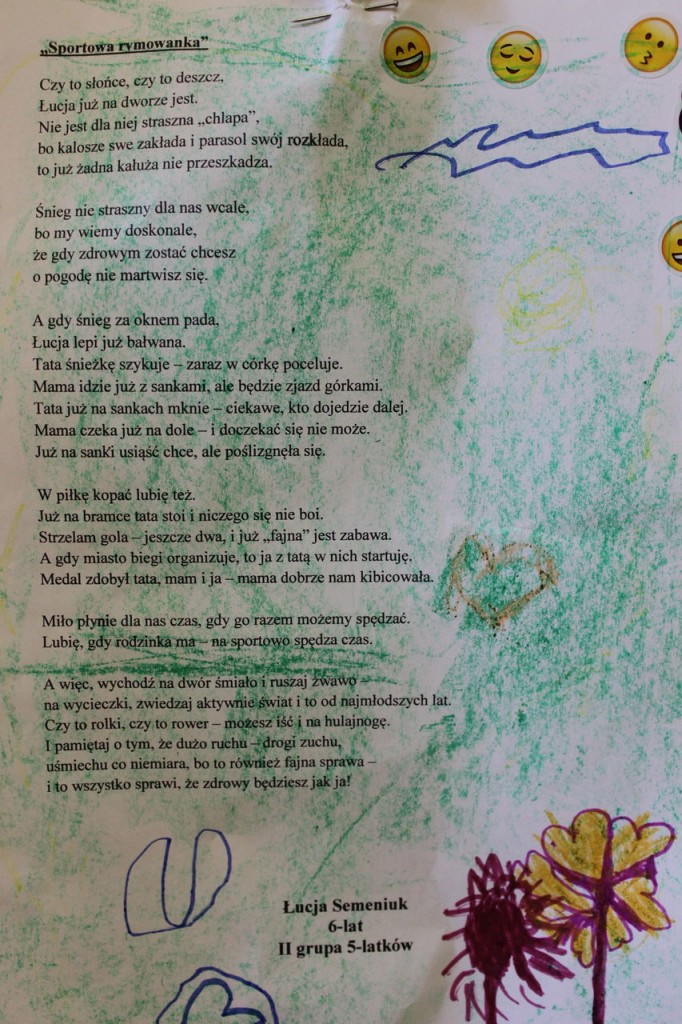 „Sportowa rymowanka”
Czy to słońce, czy to deszcz,
Łucja już na dworze jest.
Nie jest dla niej straszna „chlapa”,
bo kalosze swe zakłada i parasol swój rozkłada,
to już żadna kałuża nie przeszkadza.
Śnieg nie straszny dla nas wcale,
bo my wiemy doskonale,
że gdy zdrowym zostać chcesz
o pogodę nie martwisz się.
A gdy śnieg za oknem pada,
Łucja lepi już bałwana.
Tata śnieżkę szykuje – zaraz w córkę poceluje.
Mama idzie już z sankami, ale będzie zjazd górkami.
Tata już na sankach mknie – ciekawe, kto dojedzie dalej.
Mama czeka już na dole – i doczekać się nie może.
Już na sanki usiąść chce, ale poślizgnęła się.
W piłkę kopać lubię też.
Już na bramce tata stoi i niczego się nie boi.
Strzelam gola – jeszcze dwa, i już „fajna” jest zabawa.
A gdy miasto biegi organizuje, to ja z tatą w nich startuję.
Medal zdobył tata, mam i ja – mama dobrze nam kibicowała.
Miło płynie dla nas czas, gdy go razem możemy spędzać.
Lubię, gdy rodzinka ma – na sportowo spędza czas.
A więc, wychodź na dwór śmiało i ruszaj żwawo –
na wycieczki, zwiedzaj aktywnie świat i to od najmłodszych lat.
Czy to rolki, czy to rower – możesz iść i na hulajnogę.
I pamiętaj o tym, że dużo ruchu – drogi zuchu,
uśmiechu co niemiara, bo to również fajna sprawa –
i to wszystko sprawi, że zdrowy będziesz jak ja!
Łucja Semeniuk
6-lat
II grupa 5-latków